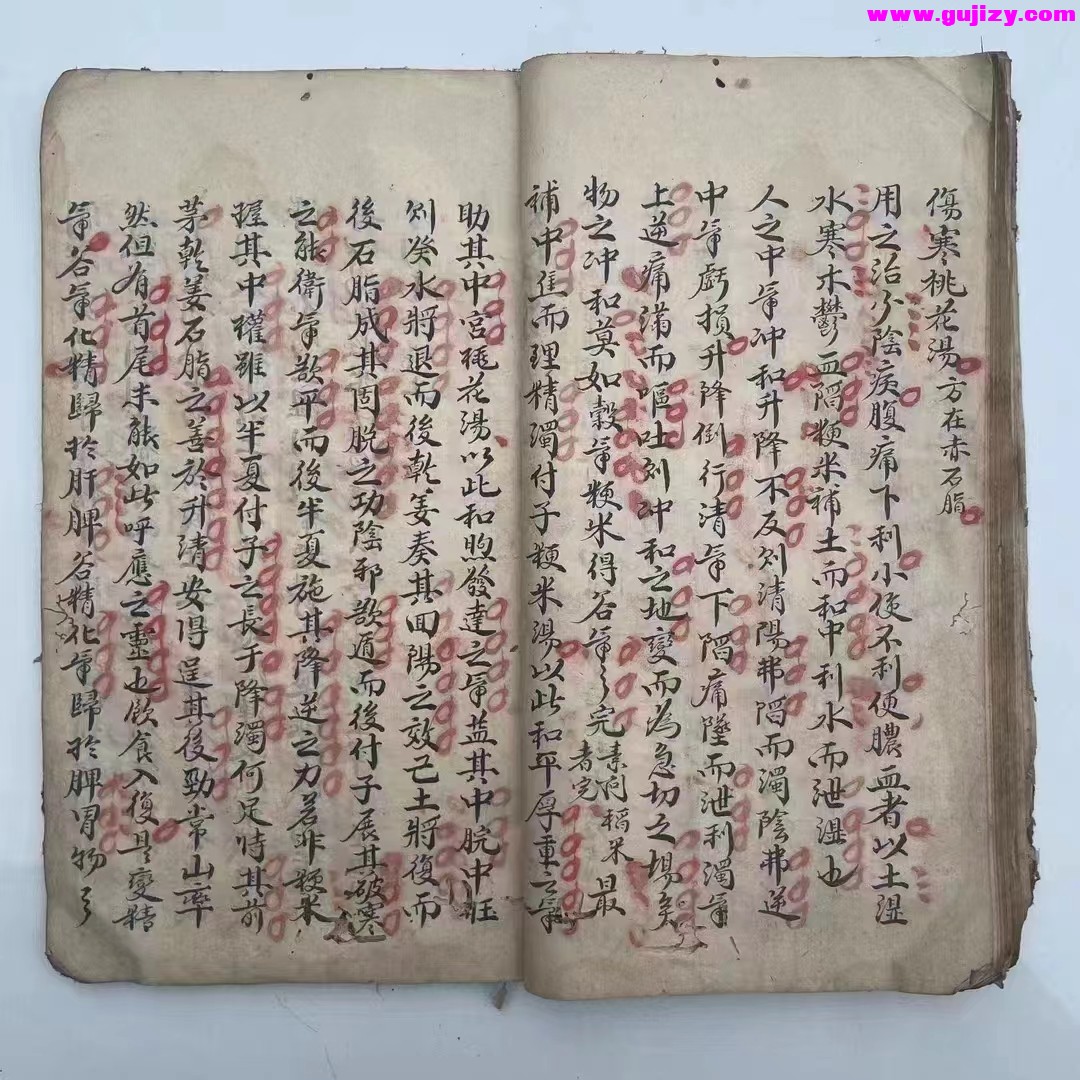 www.gujizy.com
傷寒桃花湯方在赤石脂
用之治少陰病腹痛下利小便不利便膿血者以土濕
水寒木鬱血陷粳米補土而和中利水而泄濕也
人之中氣冲和升降不反則清陽弗陷而濁陰弗逆
中氣虧損升降倒行清氣下陷痛墜而泄利濁氣
上逆痛滿而嘔吐則冲和之地變而為急切之場矣
物之冲和莫如穀氣粳米得谷氣之完素問稻米者完最
補中焦而理精濁付子粳米湯以此和平厚重之氣
助其中宮桃花湯以此和煦發達之氣益其中脘中旺
則癸水將退而後乾姜奏其回陽之效己土將復而
後石脂成其固脫之功陰邪欲遁而後付子展其破寒
之能衛氣欲平而後半夏施其降逆之力若非粳米
握其中權雖以半夏付子之長于降濁何足恃其前
茅乾姜石脂之善於升清安得逞其後勁常山率
然但有首尾未能如此呼應之靈也飲食入復是變精
氣谷氣化精歸於肝脾谷精化氣歸於脾胃物之